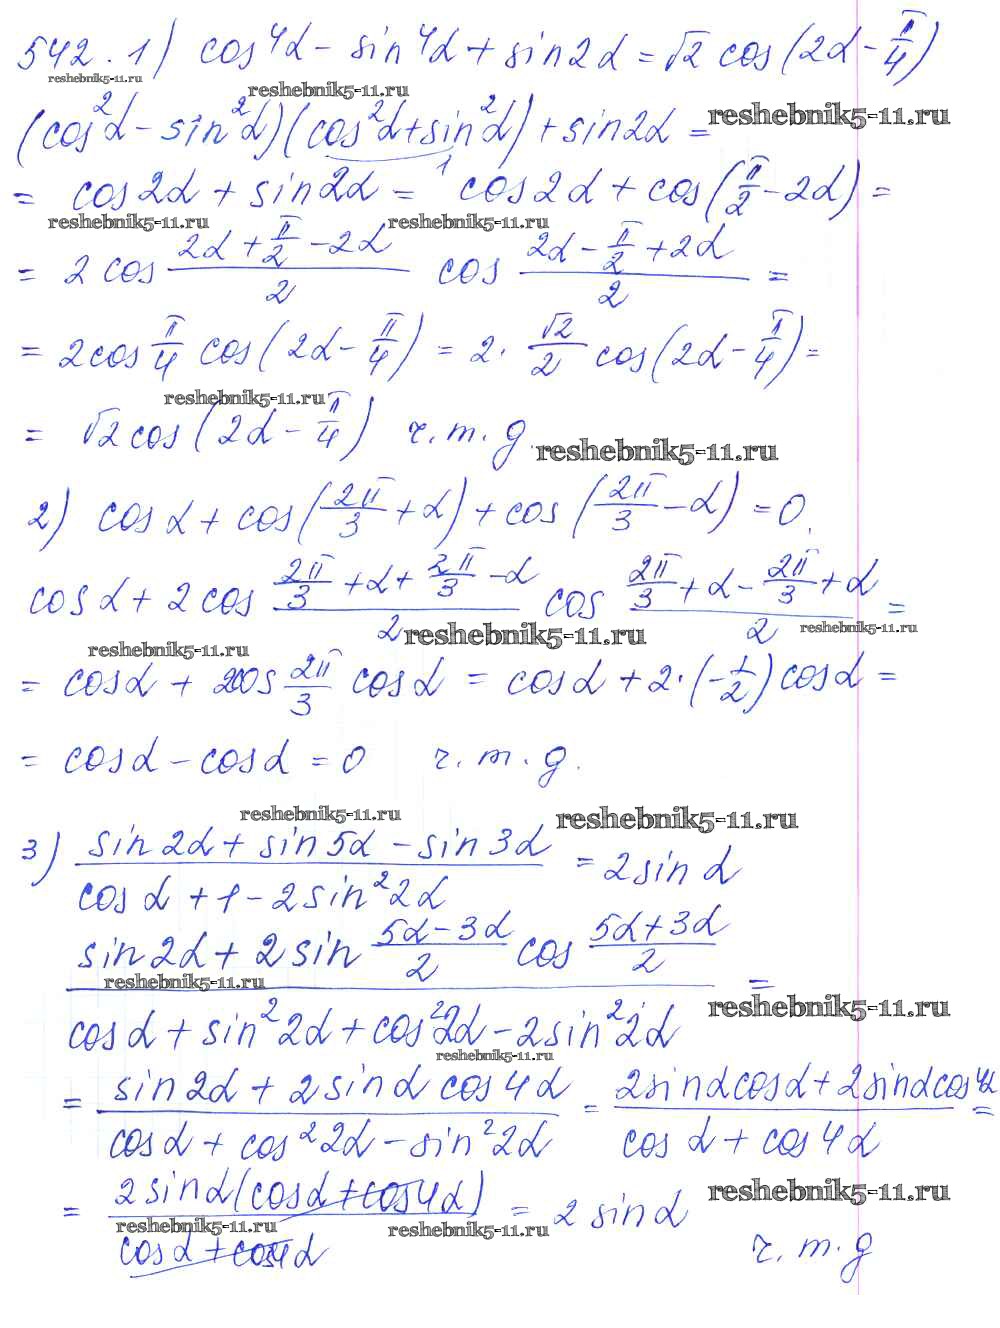 542. 1) cos⁴α - sin⁴α + sin2α = √2 cos(2α - π/4)
reshebnik5-11.ru reshebnik5-11.ru
(cos²α - sin²α)(cos²α + sin²α) + sin2α = reshebnik5-11.ru
1
= cos2α + sin2α = cos2α + cos(π/2 - 2α) =
reshebnik5-11.ru reshebnik5-11.ru
= 2 cos (2α + π/2 - 2α)/2 cos (2α - π/2 + 2α)/2 =
= 2cos π/4 cos(2α - π/4) = 2 · √2/2 cos(2α - π/4) =
reshebnik5-11.ru
= √2 cos(2α - π/4) ч.т.д. reshebnik5-11.ru
2) cosα + cos(2π/3 + α) + cos(2π/3 - α) = 0.
cosα + 2cos (2π/3 + α + 2π/3 - α)/2 cos (2π/3 + α - 2π/3 + α)/2 =
reshebnik5-11.ru reshebnik5-11.ru reshebnik5-11.ru
= cosα + 2cos 2π/3 cosα = cosα + 2·(-1/2)cosα =
= cosα - cosα = 0 ч.т.д.
reshebnik5-11.ru reshebnik5-11.ru
3) (sin2α + sin5α - sin3α)/(cosα + 1 - 2sin²2α) = 2sinα
(sin2α + 2sin (5α - 3α)/2 cos (5α + 3α)/2)/(cosα + sin²2α + cos²2α - 2sin²2α) =
reshebnik5-11.ru reshebnik5-11.ru
reshebnik5-11.ru
= (sin2α + 2sinα cos4α)/(cosα + cos²2α - sin²2α) = (2sinαcosα + 2sinαcos4α)/(cosα + cos4α) =
= (2sinα(cosα + cos4α))/(cosα + cos4α) = 2sinα
reshebnik5-11.ru reshebnik5-11.ru reshebnik5-11.ru
ч.т.д